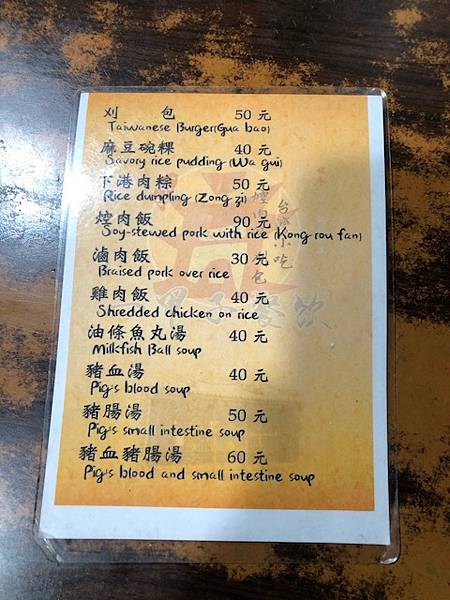 刈 包 50 元
Taiwanese Burger(Gua bao)
麻豆碗粿 40 元
Savory rice pudding (Wa gui)
下港肉粽 50 元
Rice dumpling (Zong zi)
焢肉飯 90 元
Soy-stewed pork with rice (Kong rou fan)
滷肉飯 30 元
Braised pork over rice
雞肉飯 40 元
Shredded chicken on rice
油條魚丸湯 40 元
Milkfish Ball soup
豬血湯 40 元
Pig's blood soup
豬腸湯 50 元
Pig's small intestine soup
豬血豬腸湯 60 元
Pig's blood and small intestine soup
台灣小吃